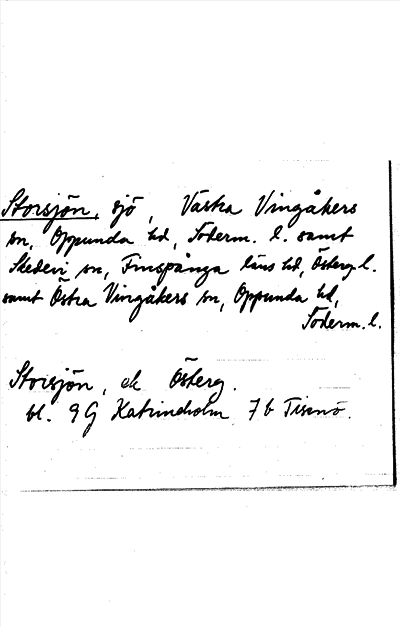 Storsjön, sjö, Västra Vingåkers
sn, Oppunda hd, Söderm. l. samt
Skedevi sn, Finspånga läns hd, Österg. l.
samt Östra Vingåkers sn, Oppunda hd,
Söderm. l.
Storsjön, ek Österg.
bl. 9G Katrineholm 7b Tisnö.